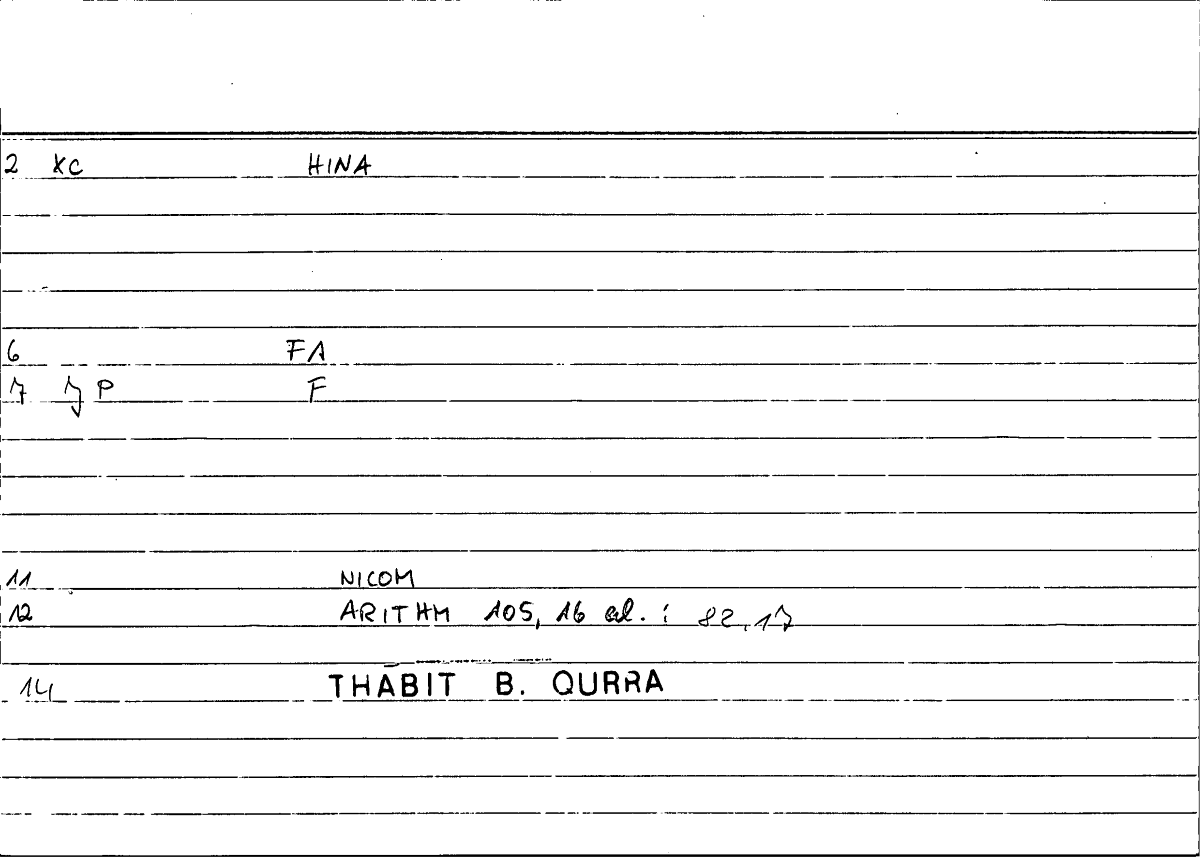 2 XC HINA
6 FA
7 J P F
11 NICOM
12 ARITHM 105, 16 al. : 82,17
14 THABIT B. QURRA